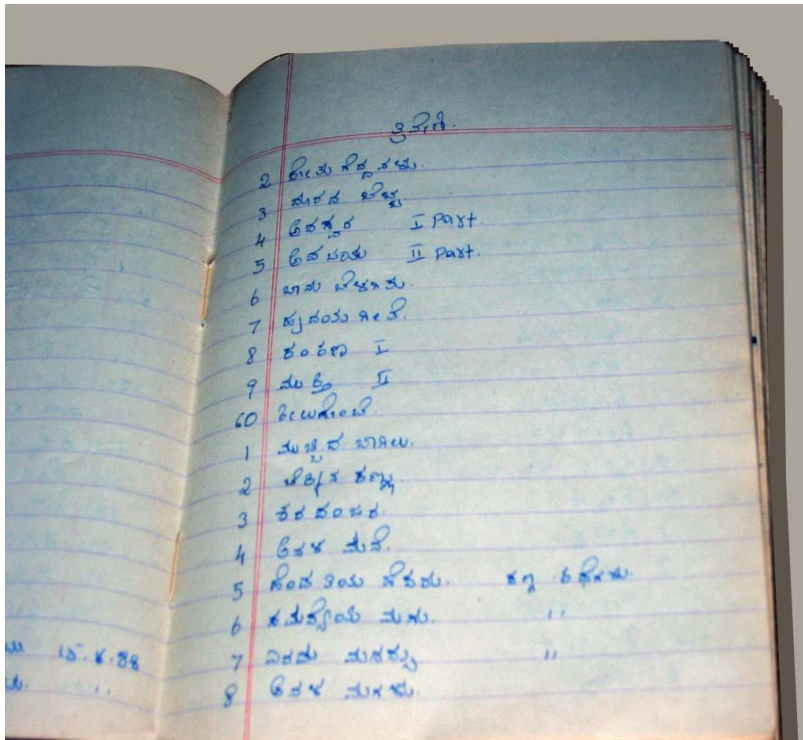 ತ್ರಿವೇಣಿ.
2 ಸೋತು ಗೆದ್ದವಳು.
3 ದೂರದ ಬೆಟ್ಟ
4 ಅಪಸ್ವರ I Part.
5 ಅಪಜಯ II Part.
6 ಬಾನು ಬೆಳಗಿತು.
7 ಹೃದಯ ಗೀತೆ.
8 ಕಂಕಣ I
9 ಮುಕ್ತಿ II
60 ಕೀಲುಗೊಂಬೆ.
1 ಮುಚ್ಚಿದ ಬಾಗಿಲು.
2 ಬೆಕ್ಕಿನ ಕಣ್ಣು
3 ಶರಪಂಜರ.
4 ಅವಳ ಮನೆ.
5 ಹೆಂಡತಿಯ ಹೆಸರು. ಸಣ್ಣ ಕಥೆಗಳು.
6 ಸಮಸ್ಯೆಯ ಮಗು. ,,
7 ಎರಡು ಮನಸ್ಸು ,,
8 ಅವಳ ಮಗಳು.